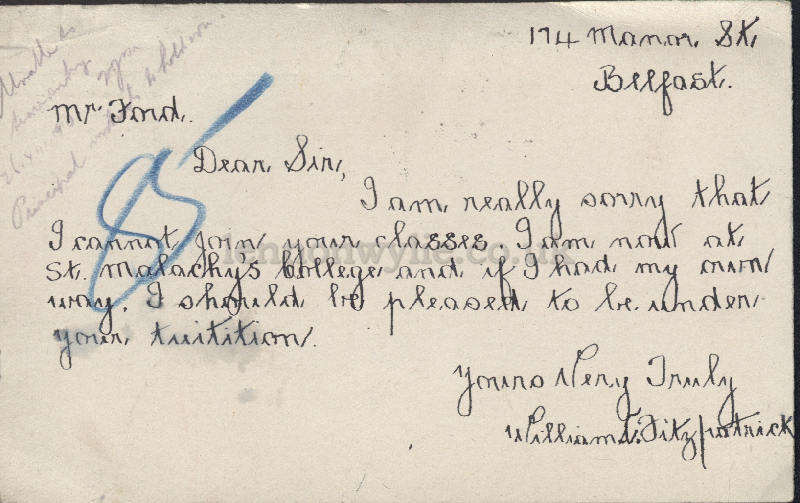 174 Manor St.
Belfast.
Mr Ford.
Dear Sir,
I am really sorry that
I cannot join your classes. I am now at
St. Malachy's College and if I had my own
way, I should be pleased to be under
your tuitition.
Yours Very Truly
William J. Fitzpatrick
lennonwylie.co.uk
Principal